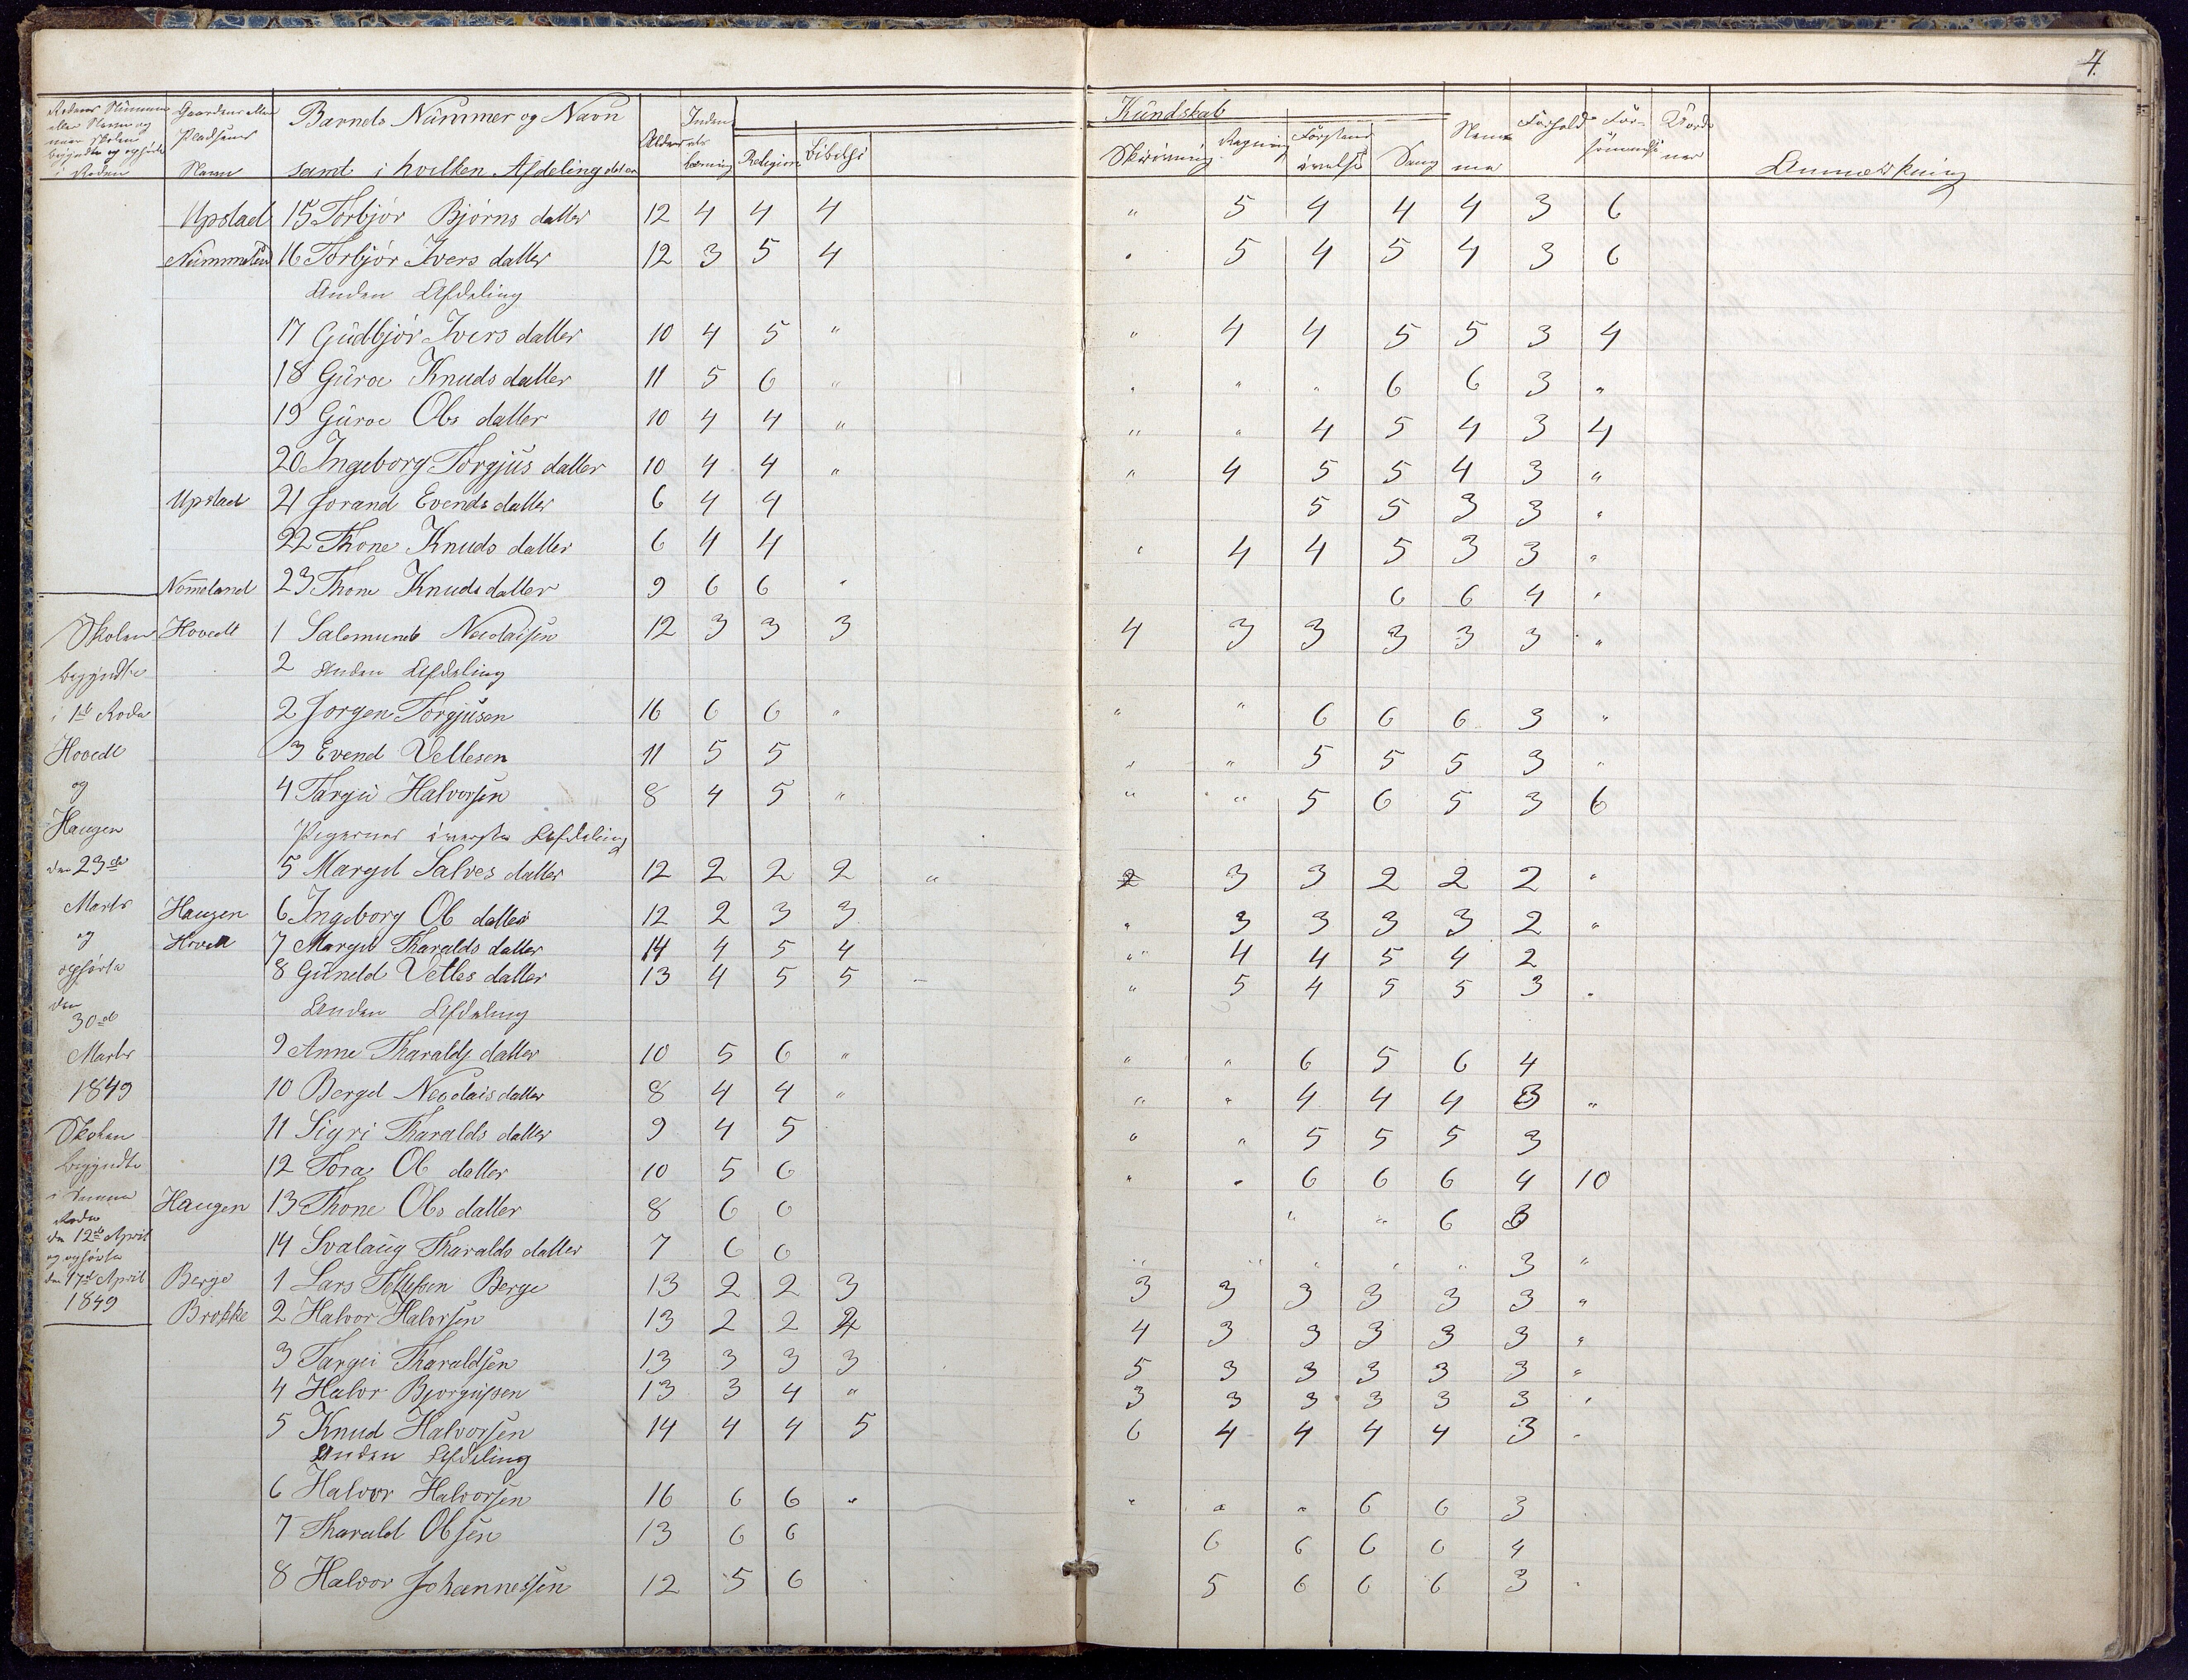 4.
Gaardens eller Pladsens Navn
Barnets Nummer og Navn samt i hvilken Afdeling det er
Alder
Inden
Religion
Kundskab
Skrivning
Regning
Sang
Nemme
Forhold
Anmærkning
Upstad 15 Torbjør Bjørns datter 12 4 4 4 " 5 4 4 4 3 6
16 Torbjør Ivers datter 12 3 5 4 " 5 4 5 4 3 6
Anden Afdeling
17 Gudbjør Ivers datter 10 4 5 " " 4 4 5 5 3 4
18 Guroe Knuds datter 11 5 6 " " " " 6 6 3 "
19 Guroe Ols datter 10 4 4 " " " 4 5 4 3 4
20 Ingeborg Torgjus datter 10 4 4 " " 4 5 5 4 3 "
Upstad 21 Jorand Evends datter 6 4 4 5 5 3 3 "
22 Thone Knuds datter 6 4 4 " 4 4 5 3 3 "
Nomeland 23 Thone Knuds datter 9 6 6 " 6 6 4 "
Skolen Hovedt 1 Salemund Neculaisen 12 3 3 3 4 3 3 3 3 3 "
begyndte 2 Anden Afdeling
i 1ste Rode 2 Jorgen Torgjusen 16 6 6 " " " 6 6 6 3 "
Hovedt 3 Evend Vetlesen 11 5 5 " " 5 5 5 3 "
og 4 Targu Halvorsen 8 4 5 " " " 5 6 5 3 6
Haugen Pigernes øverste Afdeling
den 23de 5 Margit Salves datter 12 2 2 2 " 2 3 3 2 2 2 "
Marts Haugen 6 Ingeborg Ol datter 12 2 3 3 " 3 3 3 3 2 "
og Hovedt 7 Margit Tharalds datter 14 4 5 4 " 4 4 5 4 2
opførte 8 Guneld Vetles datter 13 4 5 5 " 5 4 5 5 3 "
den 30de Anden Afdeling
Marts 9 Anne Tharalds datter 10 5 6 " " " 6 5 6 4
1849 10 Berget Neculais datter 8 4 4 " " " 4 4 4 3 "
Skolen 11 Sigri Tharalds datter 9 4 5 " " 5 5 5 3
begyndte 12 Tora Ol datter 10 5 6 " " 6 6 6 4 10
i denne Rode Haugen 13 Thone Ols datter 8 6 6 " " 6 3
den 12te April og opførte 14 Svalaug Tharalds datter 7 6 6 " " " " " 3 "
den 17de April Berge 1 Lars Tellefsen Berge 13 2 2 3 3 3 3 3 3 3 "
1849 Brokke 2 Halvor Halvorsen 13 2 2 4 4 3 3 3 3 3 "
3 Targei Tharaldsen 13 3 3 3 5 3 3 3 3 3 "
4 Halvor Bjorgufsen 13 3 4 " 3 3 3 3 3 3 "
5 Knud Halvorsen 14 4 4 5 6 4 4 4 4 3 "
Anden Afdeling
6 Halvor Halvorsen 16 6 6 " " " " 6 6 3
7 Tharald Olsen 13 6 6 6 6 6 6 4
8 Halvor Johannessen 12 5 6 5 6 6 6 3 "